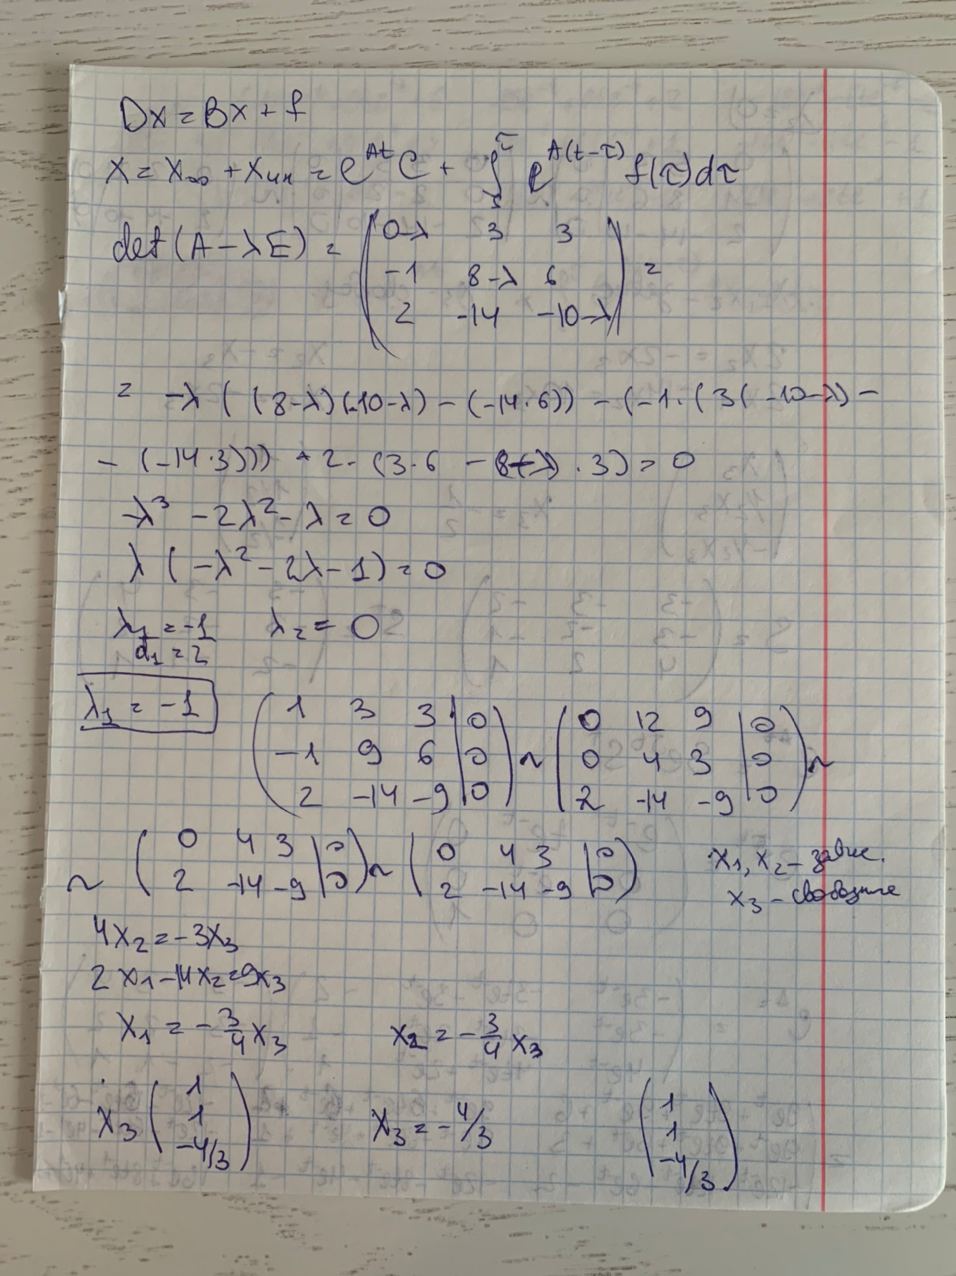 Dx = Bx + f
X = X∞ + Xчн = e^{At} C + ∫ e^{A(t-τ)} f(τ)dτ
det(A-λE) = (0-λ 3 3
-1 8-λ 6
2 -14 -10-λ) =
= -λ((8-λ)(-10-λ) - (-14·6)) - (-1·(3(-10-λ) -
- (-14·3))) + 2·(3·6 - (8-λ)·3) = 0
-λ³ - 2λ² - λ = 0
λ(-λ² - 2λ - 1) = 0
λ₁ = -1 λ₂ = 0
d₁ = 2
λ₁ = -1
(1 3 3 | 0
-1 9 6 | 0
2 -14 -9 | 0) ~ (0 12 9 | 0
0 4 3 | 0
2 -14 -9 | 0) ~
~ (0 4 3 | 0
2 -14 -9 | 0) ~ (0 4 3 | 0
2 -14 -9 | 0)
x₁, x₂ - завис.
x₃ - свободные
4x₂ = -3x₃
2x₁ - 14x₂ = 9x₃
x₁ = -3/4 x₃ x₂ = -3/4 x₃
x₃ (1
1
-4/3) x₃ = -4/3 (1
1
-4/3)